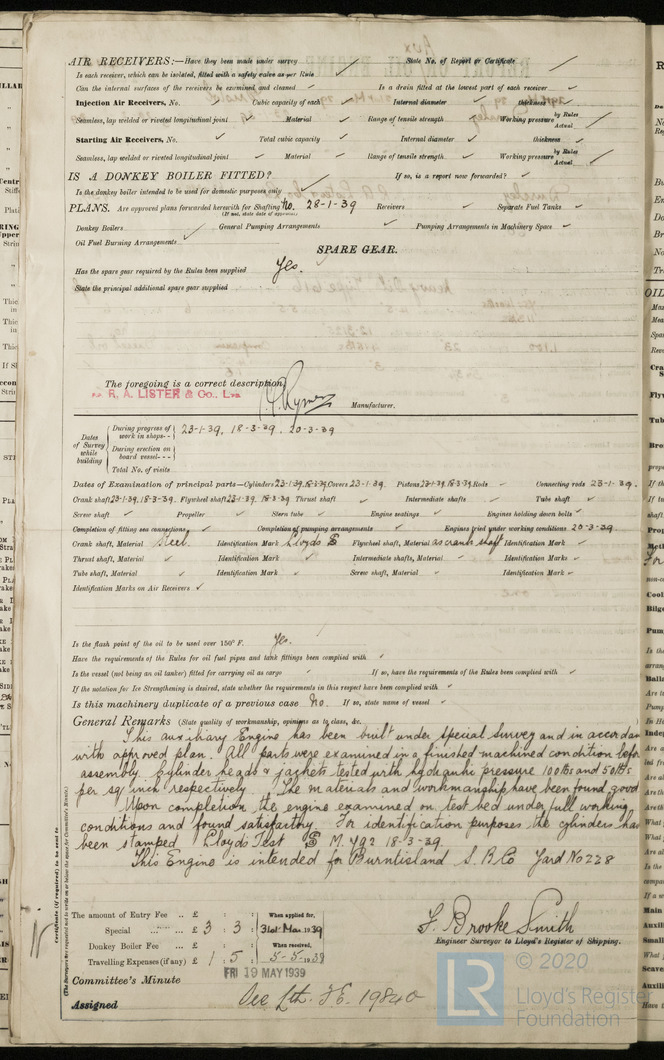 AIR RECEIVERS:—Have they been made under survey ✓ State No. of Report or Certificate ✓
Is each receiver, which can be isolated, fitted with a safety valve as per Rule ✓
Can the internal surfaces of the receivers be examined and cleaned ✓ Is a drain fitted at the lowest part of each receiver ✓
Injection Air Receivers, No. ✓ Cubic capacity of each ✓ Internal diameter ✓ thickness ✓
Seamless, lap welded or riveted longitudinal joint ✓ Material ✓ Range of tensile strength ✓ Working pressure by Rules Actual ✓
Starting Air Receivers, No. ✓ Total cubic capacity ✓ Internal diameter ✓ thickness ✓
Seamless, lap welded or riveted longitudinal joint ✓ Material ✓ Range of tensile strength ✓ Working pressure by Rules Actual ✓
IS A DONKEY BOILER FITTED? ✓ If so, is a report now forwarded? ✓
Is the donkey boiler intended to be used for domestic purposes only ✓
PLANS. Are approved plans forwarded herewith for Shafting No. 28-1-39 Receivers ✓ Separate Fuel Tanks ✓
(If not, state date of approval)
Donkey Boilers ✓ General Pumping Arrangements ✓ Pumping Arrangements in Machinery Space ✓
Oil Fuel Burning Arrangements ✓
SPARE GEAR.
Has the spare gear required by the Rules been supplied Yes.
State the principal additional spare gear supplied
The foregoing is a correct description,
R. A. LISTER & Co., Ltd
Manufacturer.
Dates of Survey while building
During progress of work in shops - - 23-1-39, 18-3-39, 20-3-39
During erection on board vessel - - -
Total No. of visits
Dates of Examination of principal parts—Cylinders 23-1-39, 18-3-39 Covers 23-1-39. Pistons 23-1-39, 18-3-39 Rods ✓ Connecting rods 23-1-39.
Crank shaft 23-1-39, 18-3-39. Flywheel shaft 23-1-39, 18-3-39 Thrust shaft ✓ Intermediate shafts ✓ Tube shaft ✓
Screw shaft ✓ Propeller ✓ Stern tube ✓ Engine seatings ✓ Engines holding down bolts ✓
Completion of fitting sea connections ✓ Completion of pumping arrangements ✓ Engines tried under working conditions 20-3-39.
Crank shaft, Material Steel Identification Mark Lloyds Flywheel shaft, Material as crank shaft Identification Mark ✓
Thrust shaft, Material ✓ Identification Mark ✓ Intermediate shafts, Material ✓ Identification Marks ✓
Tube shaft, Material ✓ Identification Mark ✓ Screw shaft, Material ✓ Identification Mark ✓
Identification Marks on Air Receivers ✓
Is the flash point of the oil to be used over 150° F. Yes.
Have the requirements of the Rules for oil fuel pipes and tank fittings been complied with ✓
Is the vessel (not being an oil tanker) fitted for carrying oil as cargo ✓ If so, have the requirements of the Rules been complied with ✓
If the notation for Ice Strengthening is desired, state whether the requirements in this respect have been complied with ✓
Is this machinery duplicate of a previous case No. If so, state name of vessel ✓
General Remarks (State quality of workmanship, opinions as to class, &c.
This auxiliary Engine has been built under special survey and in accordan
with approved plan. All parts were examined in a finished machined condition befor
assembly. Cylinder heads & jackets tested with hydraulic pressure 100 lbs and 50 lbs
per sq inch respectively. The materials and workmanship have been found good
Upon completion the engine examined on test bed under full working
conditions and found satisfactory. For identification purposes the cylinders hav
been stamped Lloyds Test M.492 18-3-39.
This Engine is intended for Burntisland S.B.Co Yard No 228
The amount of Entry Fee .. £ : :
Special ... £ 3 : 3 :
Donkey Boiler Fee .. £ : :
Travelling Expenses (if any) £ 1 : 5 :
When applied for, 31st Mar. 1939
When received, 5-5-1939
F. Brooke Smith
Engineer Surveyor to Lloyd's Register of Shipping.
FRI 19 MAY 1939
Committee's Minute
Assigned See Lth. F.E. 19840
© 2020
LR
Lloyd's Register
Foundation